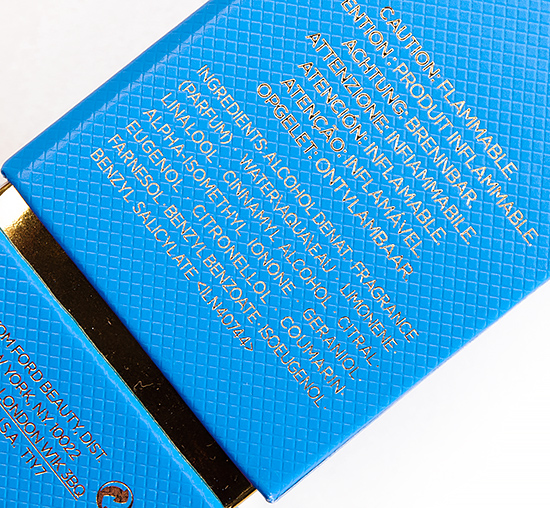 CAUTION: FLAMMABLE
ENTION: PRODUIT INFLAMMABLE
ACHTUNG: BRENNBAR
ATTENZIONE: INFIAMMABILE
ATENCIÓN: INFLAMABLE
ATENÇAO: INFLAMÁVEL
OPGELET: ONTVLAMBAAR
INGREDIENTS: ALCOHOL DENAT· FRAGRANCE
(PARFUM)· WATER\AQUA\EAU· LIMONENE·
LINALOOL· CINNAMYL ALCOHOL· CITRAL·
ALPHA-ISOMETHYL IONONE· GERANIOL·
EUGENOL· CITRONELLOL· COUMARIN·
FARNESOL· BENZYL BENZOATE· ISOEUGENOL·
BENZYL SALICYLATE <ILN40744>
TOM FORD BEAUTY, DIST.
NEW YORK, NY 10022
LONDON W1K 3BQ
U.S.A. T1Y7